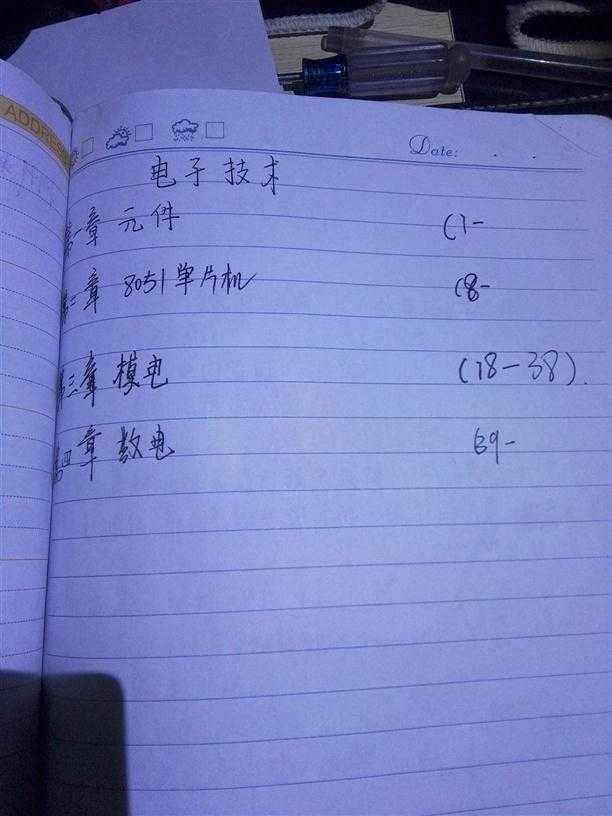 ADDRES
Date:
电子技术
第一章 元件 (1-
第二章 8051单片机 (8-
第三章 模电 (18-38).
第四章 数电 39-